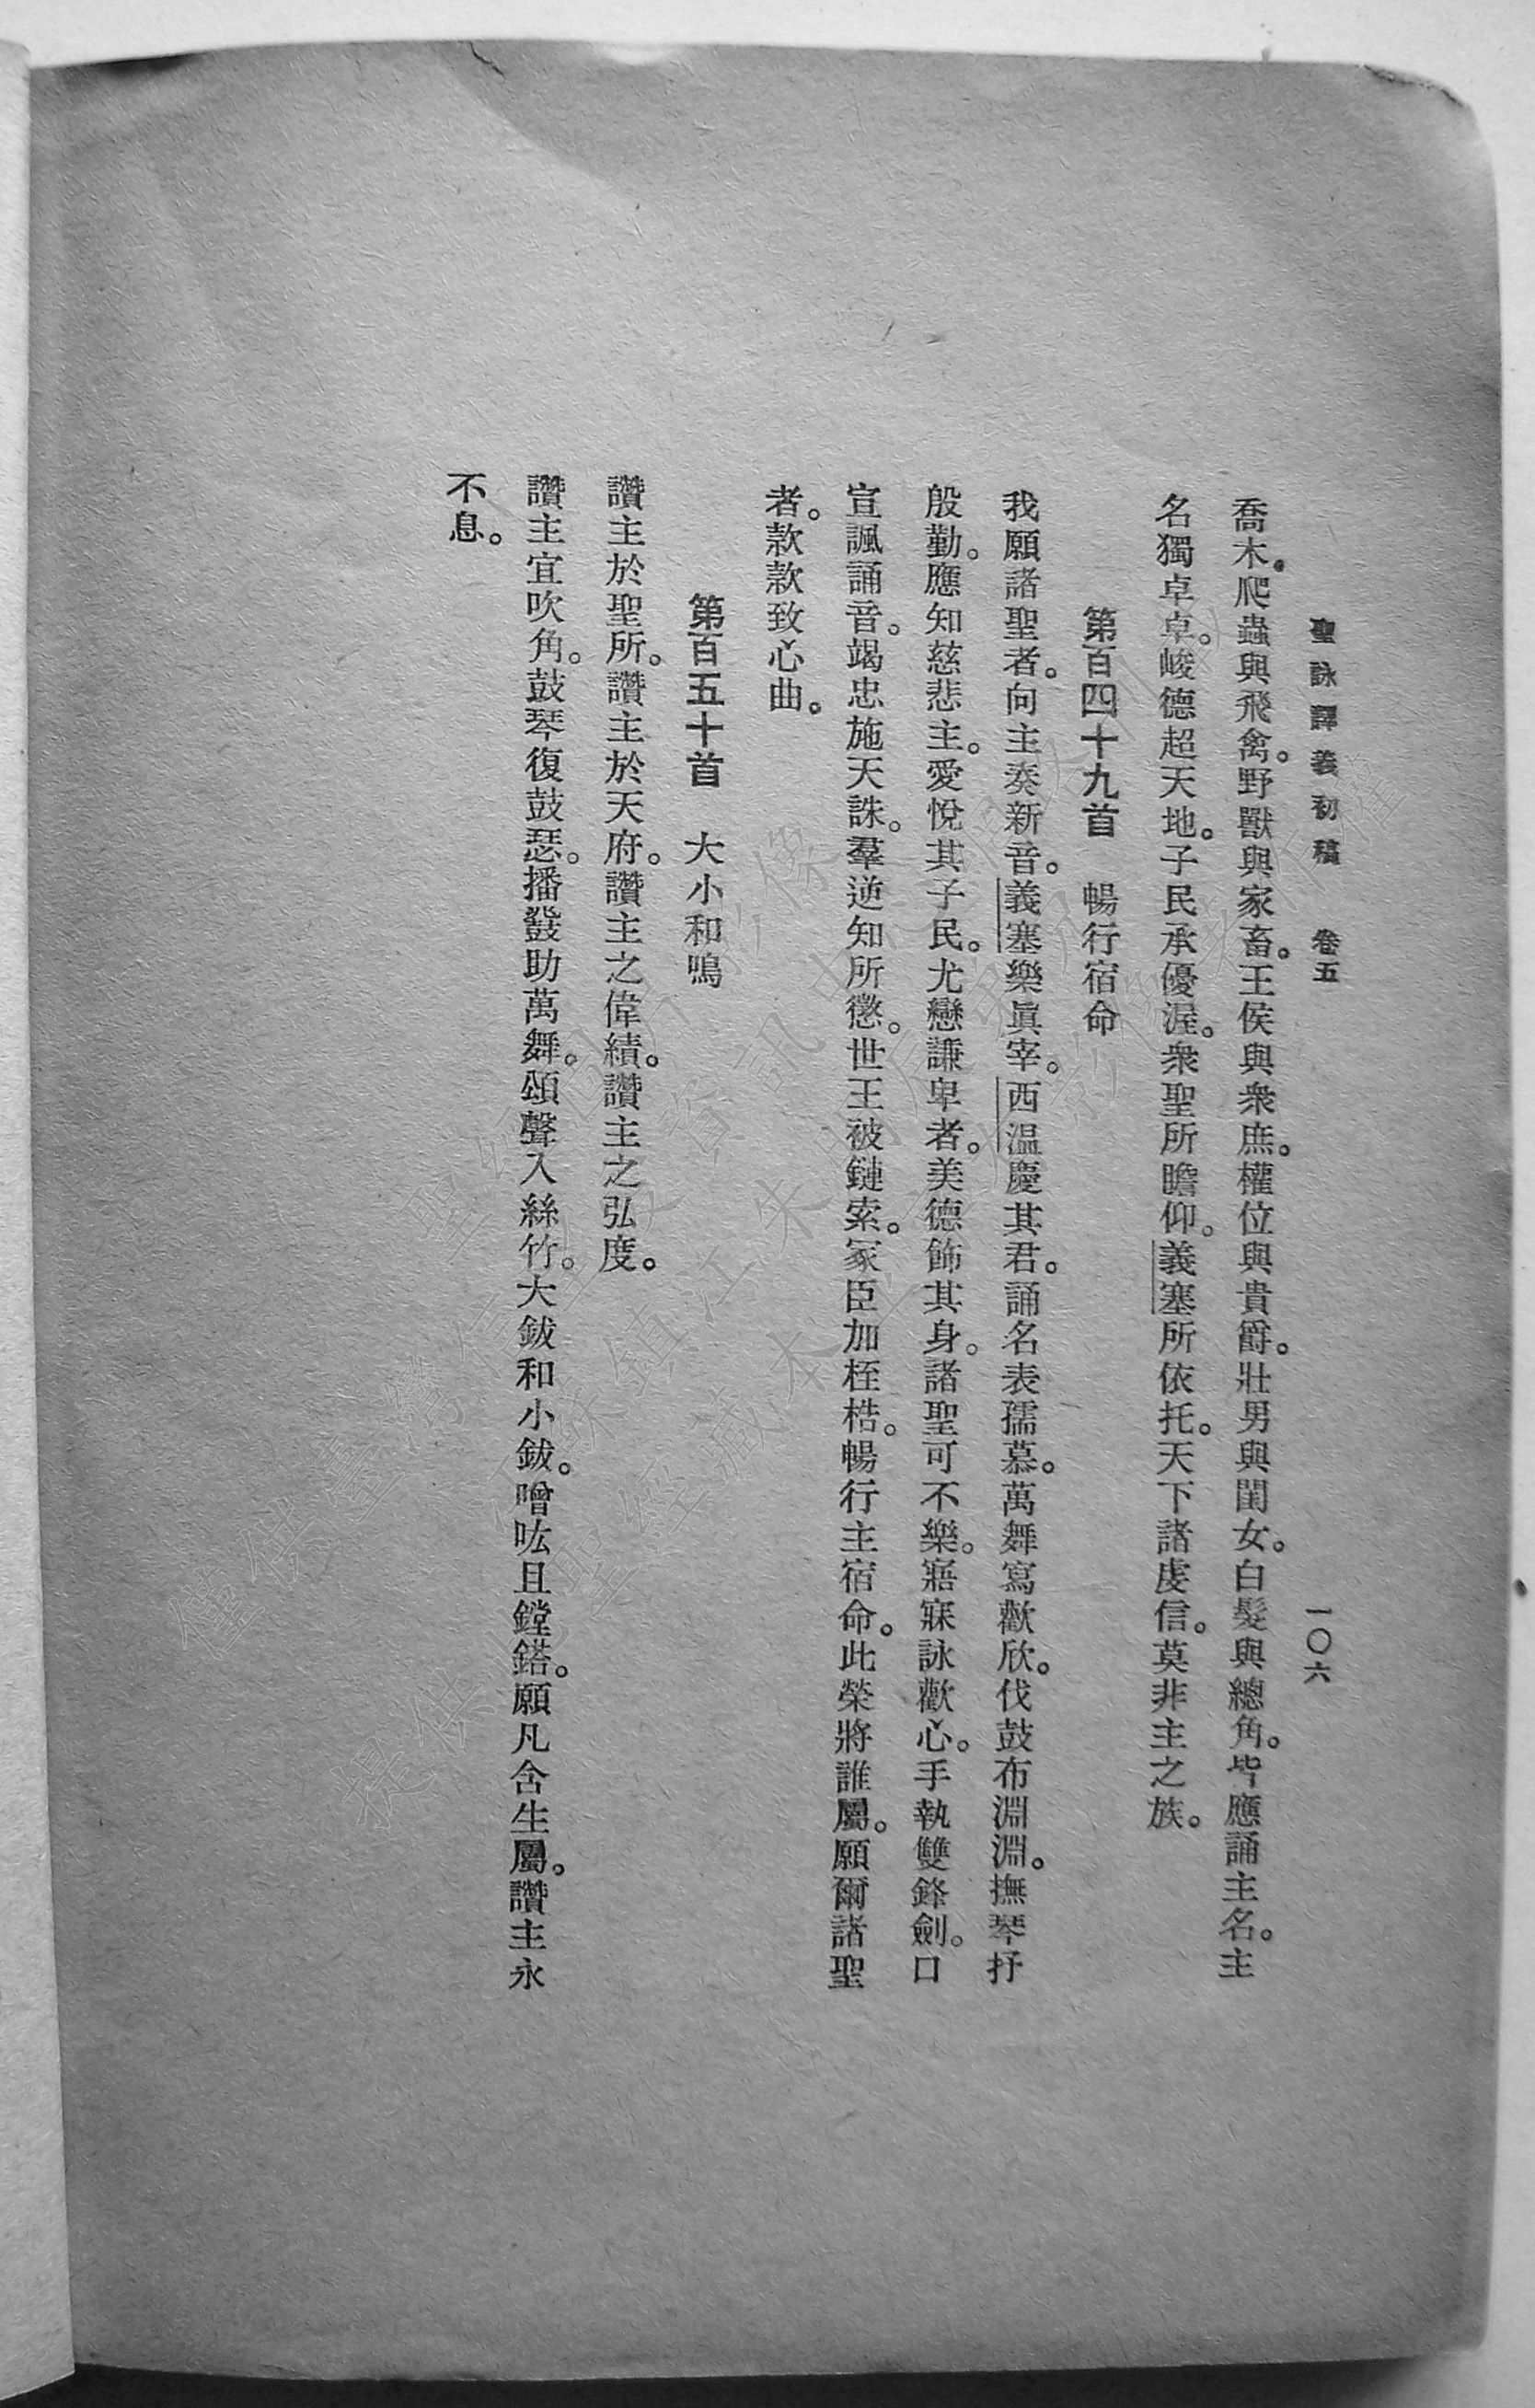 聖詠譯義初稿　卷五　一〇六
喬木。爬蟲與飛禽。野獸與家畜。王侯與衆庶。權位與貴爵。壯男與閨女。白髮與總角。皆應誦主名。主
名獨卓卓。峻德超天地。子民承優渥。衆聖所瞻仰。義塞所依托。天下諸虔信。莫非主之族。
第百四十九首　暢行宿命
我願諸聖者。向主奏新音。義塞樂眞宰。西温慶其君。誦名表孺慕。萬舞寫歡欣。伐鼓布淵淵。撫琴抒
殷勤。應知慈悲主。愛悅其子民。尤戀謙卑者。美德飾其身。諸聖可不樂。寤寐詠歡心。手執雙鋒劍。口
宣諷誦音。竭忠施天誅。羣逆知所懲。世王被鏈索。冢臣加桎梏。暢行主宿命。此榮將誰屬。願爾諸聖
者。款款致心曲。
第百五十首　大小和鳴
讚主於聖所。讚主於天府。讚主之偉績。讚主之弘度。
讚主宜吹角。鼓琴復鼓瑟。播鼗助萬舞。頌聲入絲竹。大鈸和小鈸。噌吰且鏜鎝。願凡含生屬。讚主永
不息。